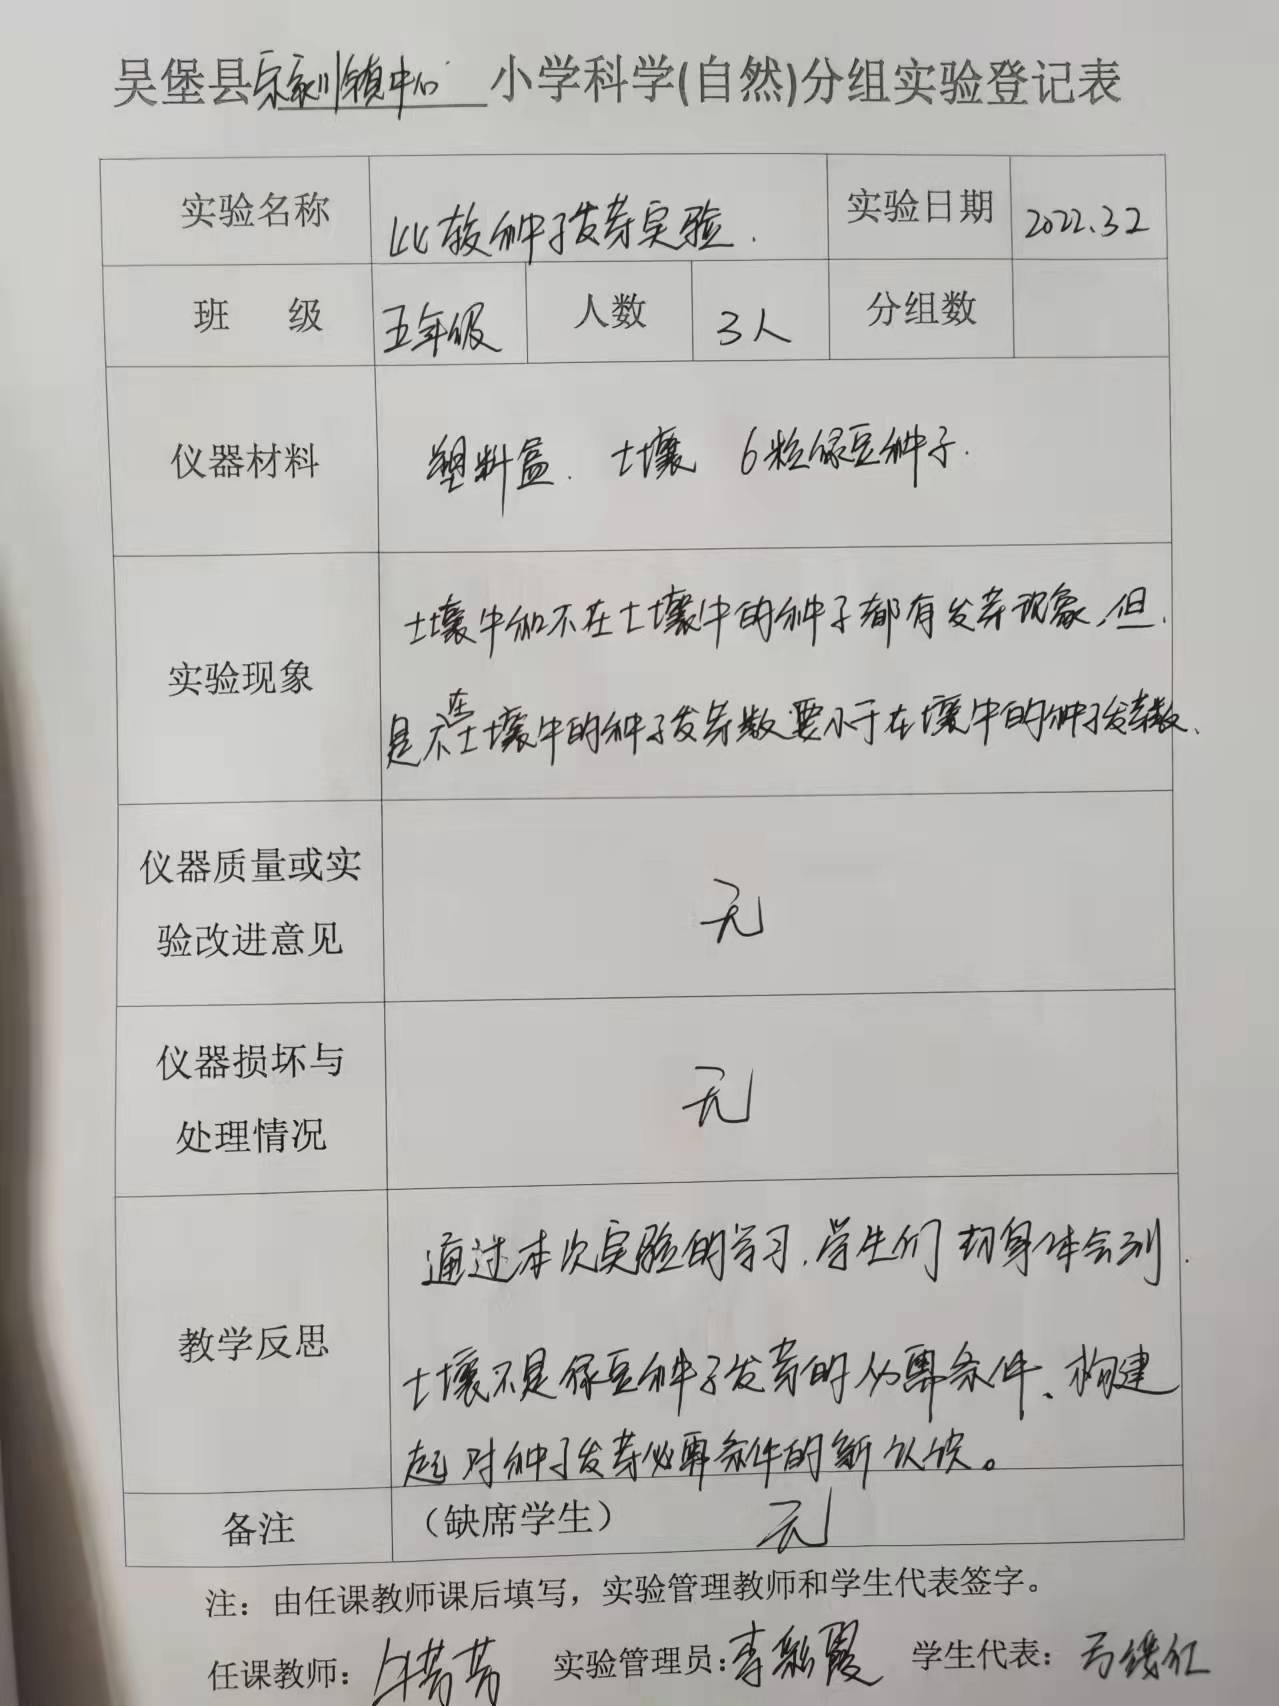 吴堡县宋家川镇中心小学科学(自然)分组实验登记表
实验名称 比较种子发芽实验. 实验日期 2022.3.2
班 级 五年级 人数 3人 分组数
仪器材料 塑料盒. 土壤 6粒绿豆种子.
土壤中和不在土壤中的种子都有发芽现象,但
实验现象
是不在土壤中的种子发芽数要小于在壤中的种子发芽数、
仪器质量或实
验改进意见
无
仪器损坏与
处理情况
无
通过本次实验的学习,学生们切身体会到
教学反思
土壤不是绿豆种子发芽的必需条件、构建
起对种子发芽必需条件的新认识。
备注 (缺席学生) 无
注：由任课教师课后填写，实验管理教师和学生代表签字。
任课教师: 牛芳芳 实验管理员: 李彩霞 学生代表: